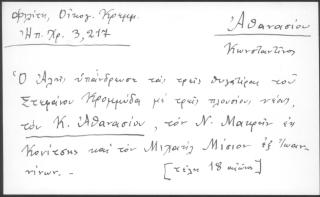 Φιλίτη, Οἰκογ. Κρομμ.
Ἠπ. Χρ. 3, 217
Ἀθανασίου
Κωνσταντῖνος
Ὁ Ἀλῆς ὑπάνδρεψε τὰς τρεῖς θυγατέρας τοῦ
Στεφάνου Κρομμύδα μὲ τρεῖς πλουσίους νέους,
τὸν Κ. Ἀθανασίου, τὸν Ν. Μακρῆν ἐκ
Κονίτσης καὶ τὸν Μιχαὴλ Μίσιον ἐξ Ἰωαν-
νίνων. –
[τέλη 18 αἰῶνος]